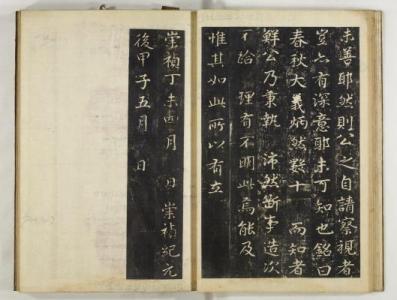 未善耶然則公之自請察視者
豈亦有深意耶未可知也銘曰
春秋大義炳然數十 而知者
鮮公乃秉執 沛然斷事造次
不給 理有不明此烏能及
惟其如此所以有立
崇禎丁未四月 日 崇禎紀元
後甲子五月 日